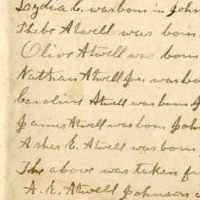 Lydia C. was born in John
Phebe Atwell was born
Olive Atwell was born
Nathan Atwell Jr. was bo
Caroline Atwell was born J
James Atwell was born John
Asher E. Atwell was born
The above was taken fr
A. E. Atwell Johnson